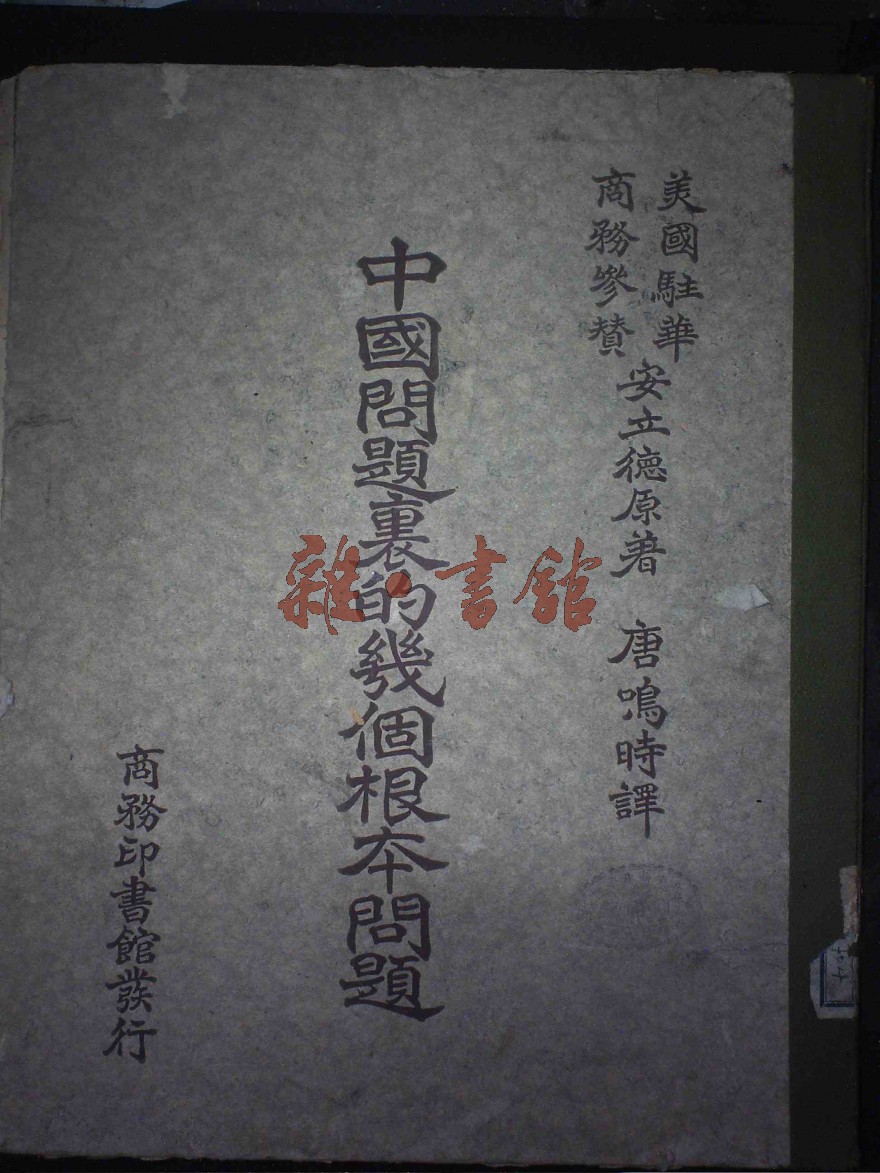 美國駐華
商務參贊
安立德原著　唐鳴時譯
中國問題裏的幾個根本問題
商務印書館發行
雜·書館